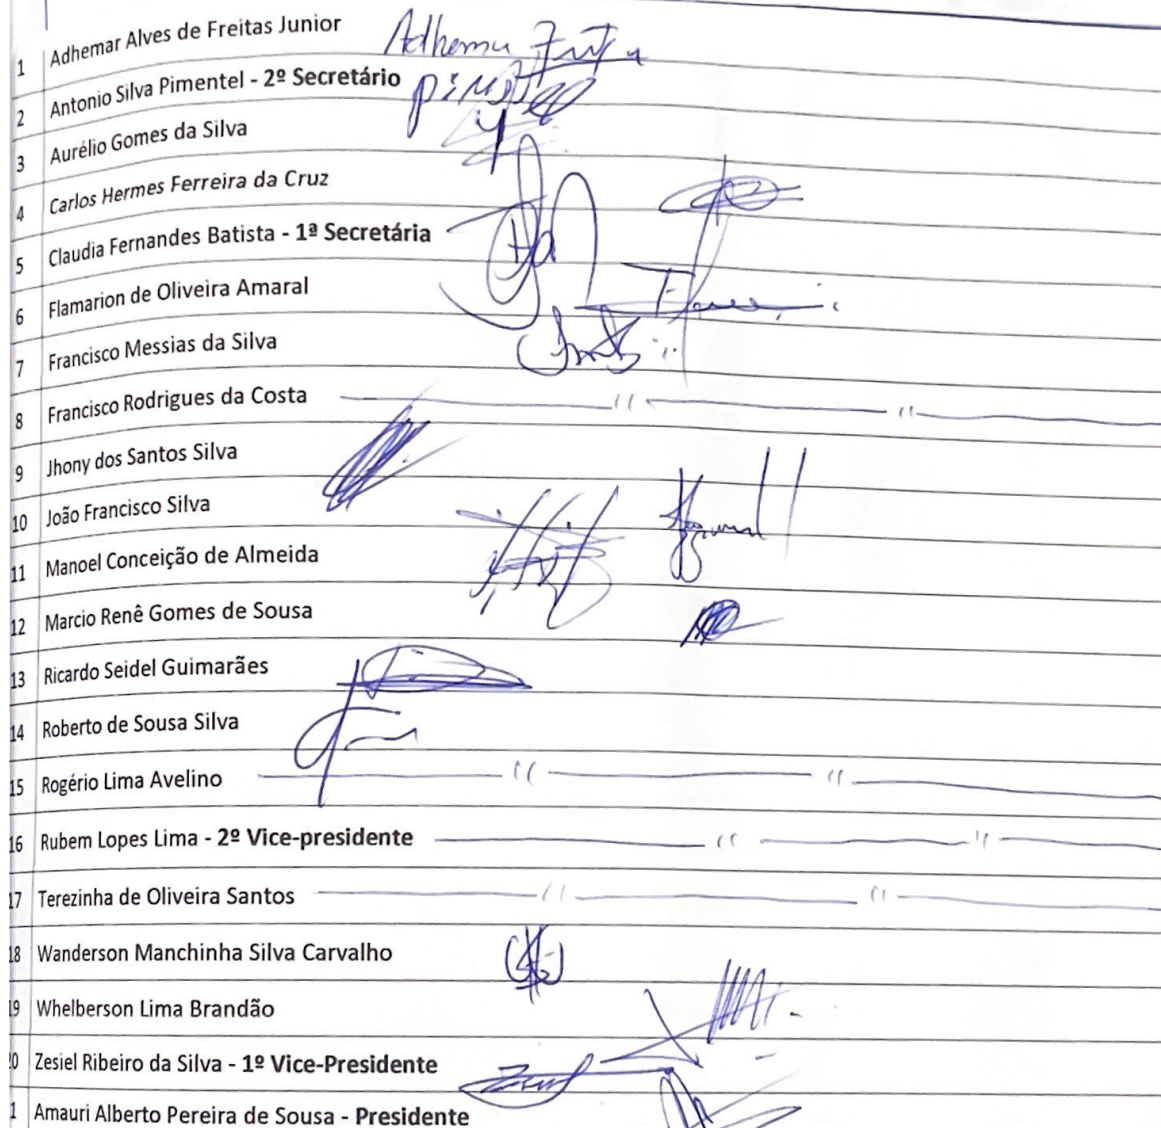 1 Adhemar Alves de Freitas Junior Adhemar Freitas
2 Antonio Silva Pimentel - 2º Secretário
3 Aurélio Gomes da Silva
4 Carlos Hermes Ferreira da Cruz
5 Claudia Fernandes Batista - 1ª Secretária
6 Flamarion de Oliveira Amaral
7 Francisco Messias da Silva
8 Francisco Rodrigues da Costa
9 Jhony dos Santos Silva
10 João Francisco Silva
11 Manoel Conceição de Almeida
12 Marcio Renê Gomes de Sousa
13 Ricardo Seidel Guimarães
14 Roberto de Sousa Silva
15 Rogério Lima Avelino
16 Rubem Lopes Lima - 2º Vice-presidente
17 Terezinha de Oliveira Santos
18 Wanderson Manchinha Silva Carvalho
19 Whelberson Lima Brandão
20 Zesiel Ribeiro da Silva - 1º Vice-Presidente
1 Amauri Alberto Pereira de Sousa - Presidente